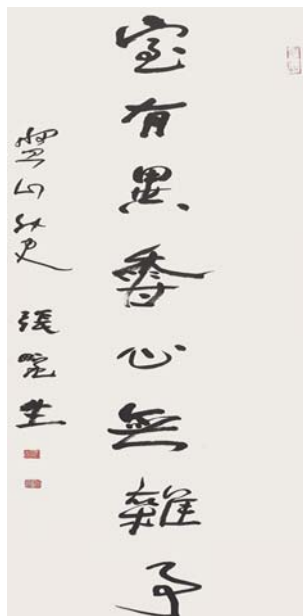 室有異香心無雜事
山外史 張 生